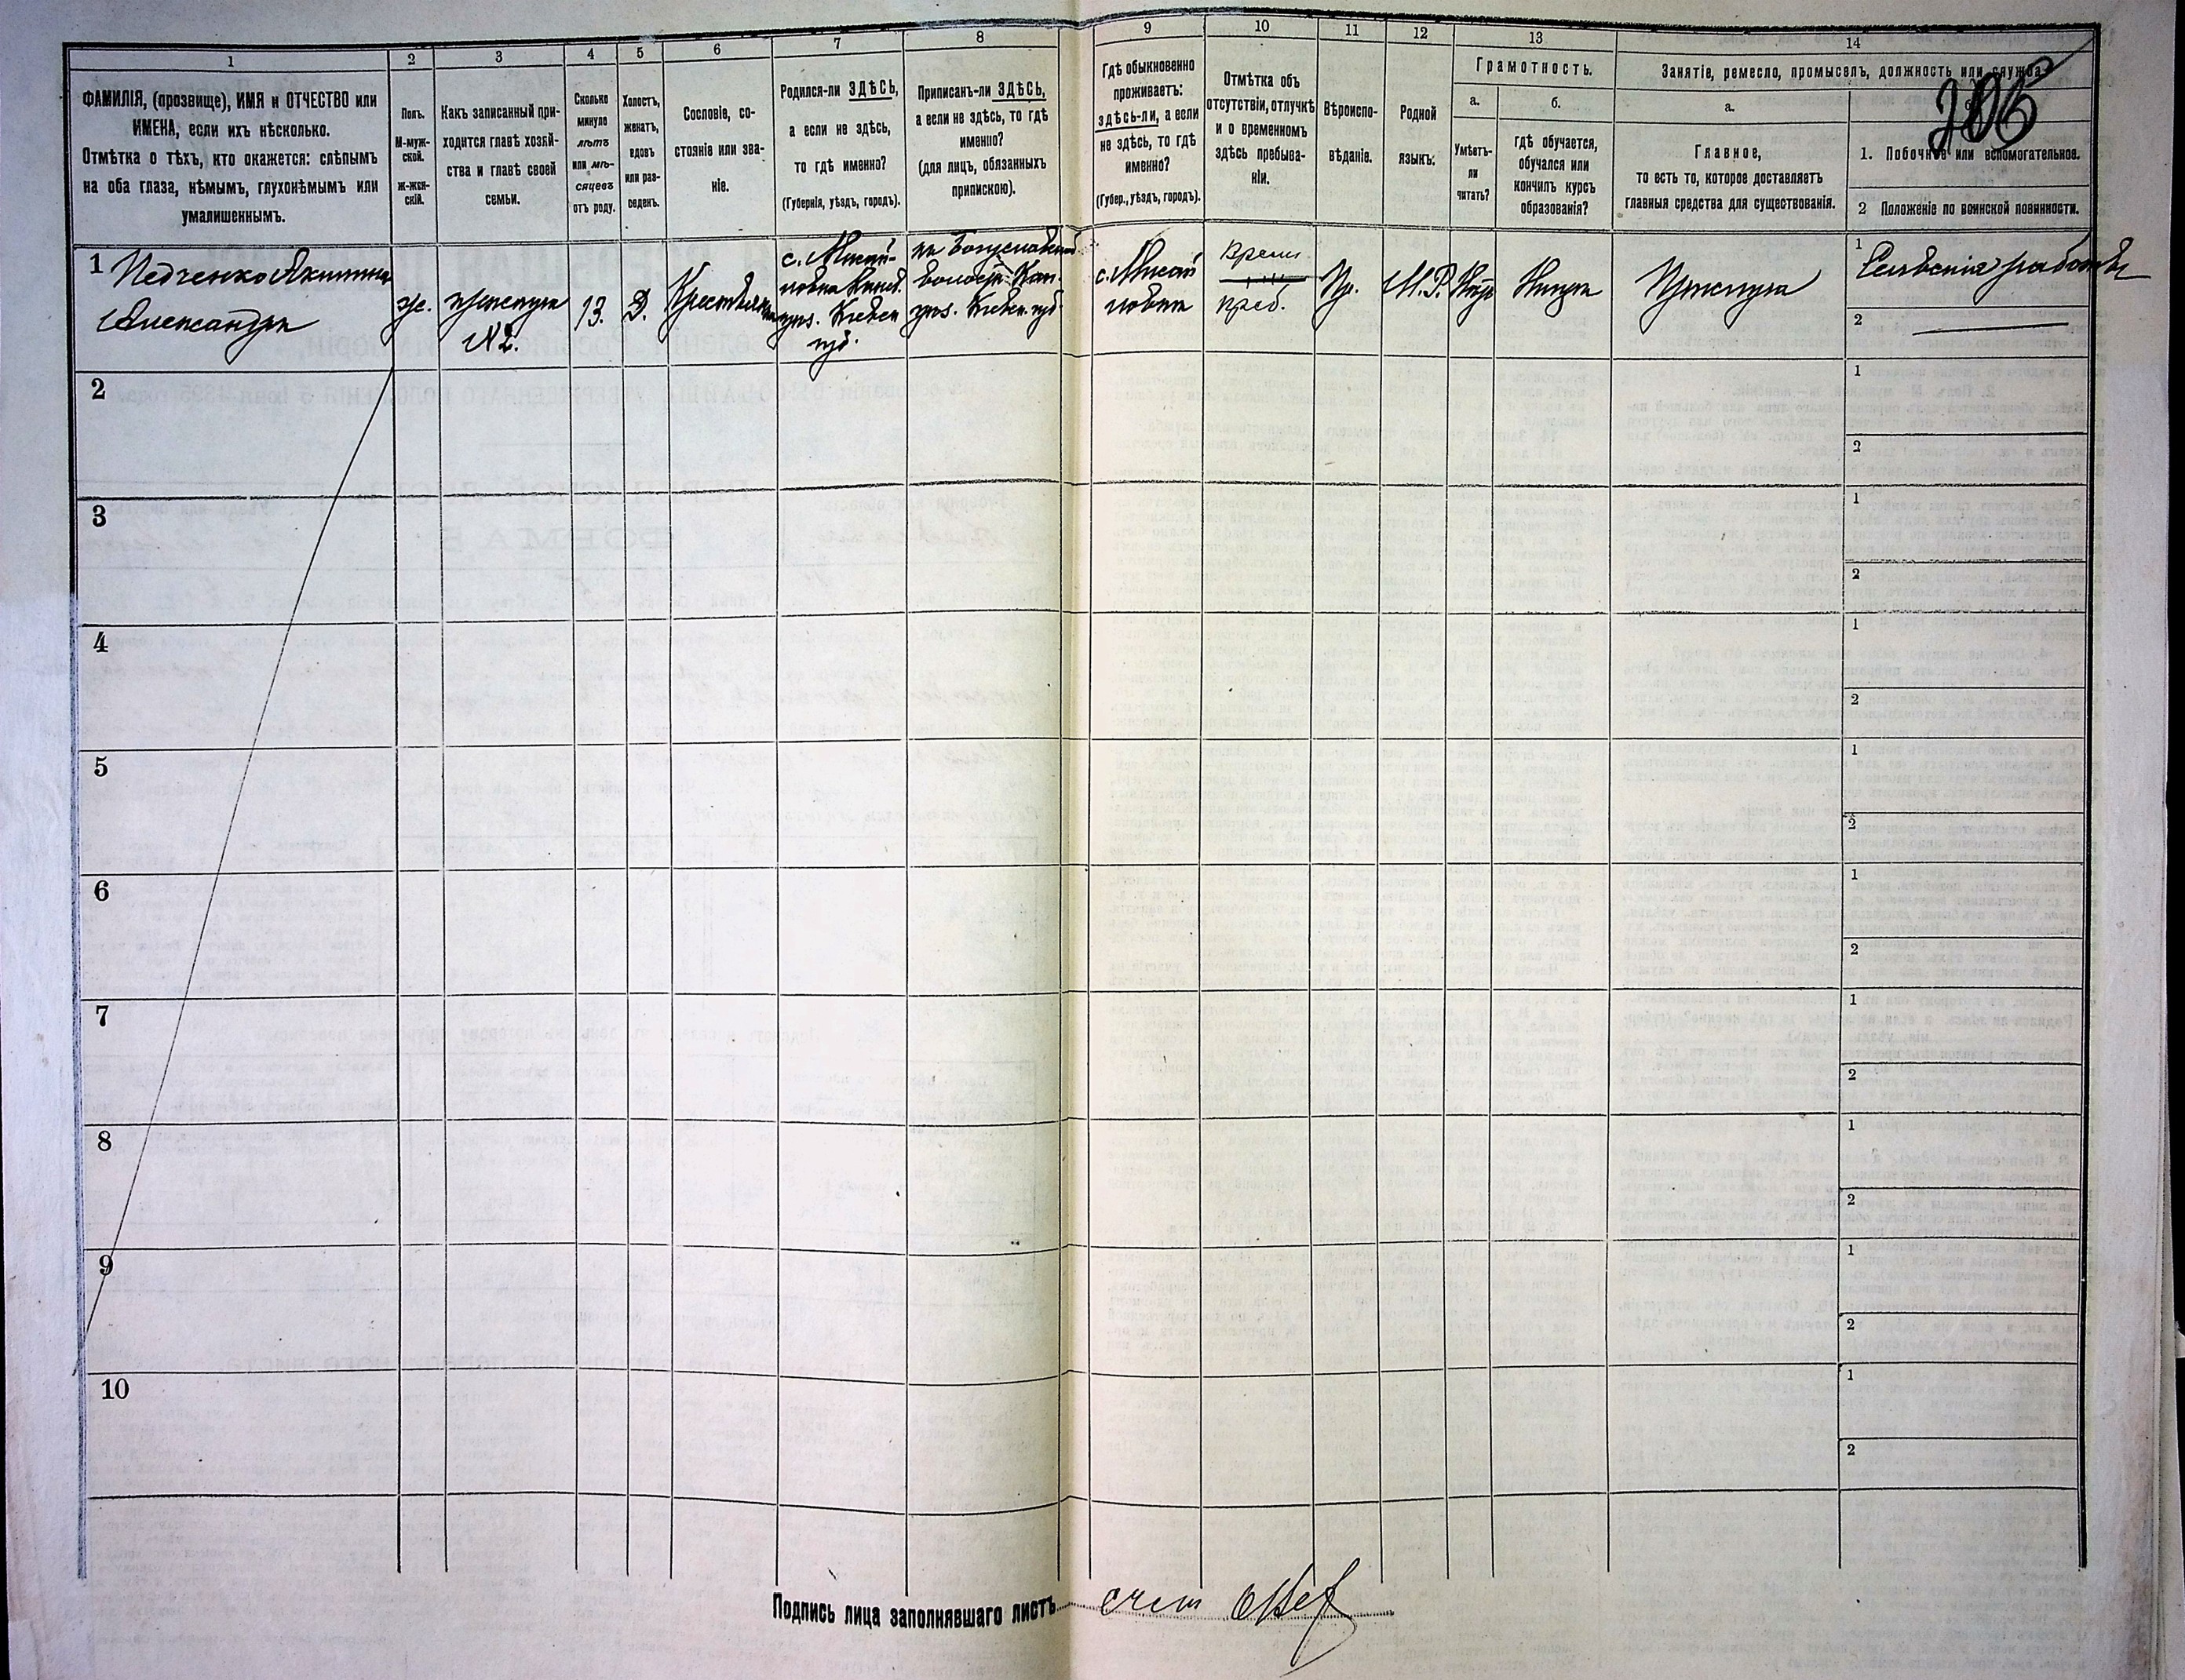 1 2 3 4 5 6 7 8 9 10 11 12 13 14
ФАМИЛІЯ, (прозвище), ИМЯ и ОТЧЕСТВО или
ИМЕНА, если ихъ нѣсколько.
Отмѣтка о тѣхъ, кто окажется: слѣпымъ
на оба глаза, нѣмымъ, глухонѣмымъ или
умалишеннымъ.
Полъ.
М-муж-
ской.
ж-жен-
скій.
Какъ записанный при-
ходится главѣ хозяй-
ства и главѣ своей
семьи.
Сколько
минуло
лѣтъ
или мѣ-
сяцевъ
отъ роду.
Холостъ,
женатъ,
вдовъ
или раз-
веденъ.
Сословіе, со-
стояніе или зва-
ніе.
Родился-ли ЗДѢСЬ,
а если не здѣсь,
то гдѣ именно?
(Губернія, уѣздъ, городъ).
Приписанъ-ли ЗДѢСЬ,
а если не здѣсь, то гдѣ
именно?
(для лицъ, обязанныхъ
припискою).
Гдѣ обыкновенно
проживаетъ:
здѣсь-ли, а если
не здѣсь, то гдѣ
именно?
(Губер., уѣздъ, городъ).
Отмѣтка объ
отсутствіи, отлучкѣ
и о временномъ
здѣсь пребыва-
ніи.
Вѣроиспо-
вѣданіе.
Родной
языкъ.
Грамотность.
а.
Умѣетъ-
ли
читать?
б.
гдѣ обучается,
обучался или
кончилъ курсъ
образованія?
Занятіе, ремесло, промыселъ, должность или служба.
а.
Главное,
то есть то, которое доставляетъ
главныя средства для существованія.
б.
1. Побочное или вспомогательное.
2 Положеніе по воинской повинности.
205
1
Александра
ж.
прислуга
№ 2.
13.
Д.
Крестьянка
гус. Киевск.
губ.
с. Мисай
ловка
Врем.
преб.
Пр.
М.Р.
Прислуга
1
2
2
1
2
3
1
2
4
1
2
5
1
2
6
1
2
7
1
2
8
1
2
9
1
2
10
1
2
Подпись лица заполнявшаго листъ